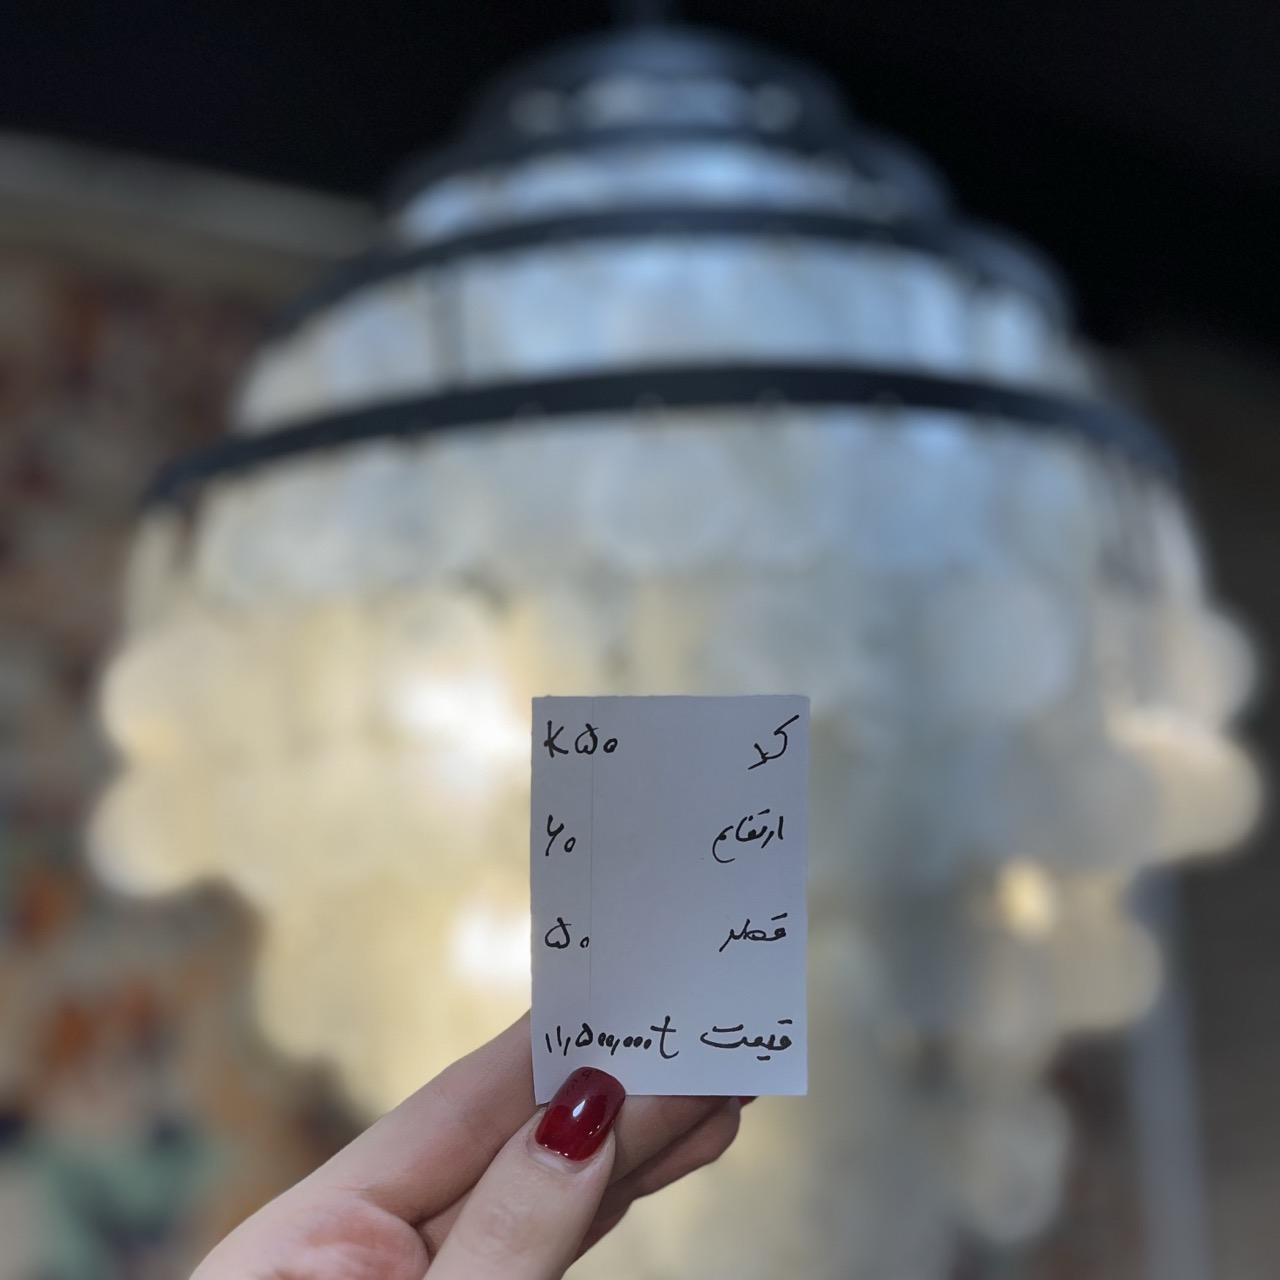 کد K۵۰
ارتفاع ۶۰
قطر ۵۰
قیمت ۱۱,۵۰۰,۰۰۰t